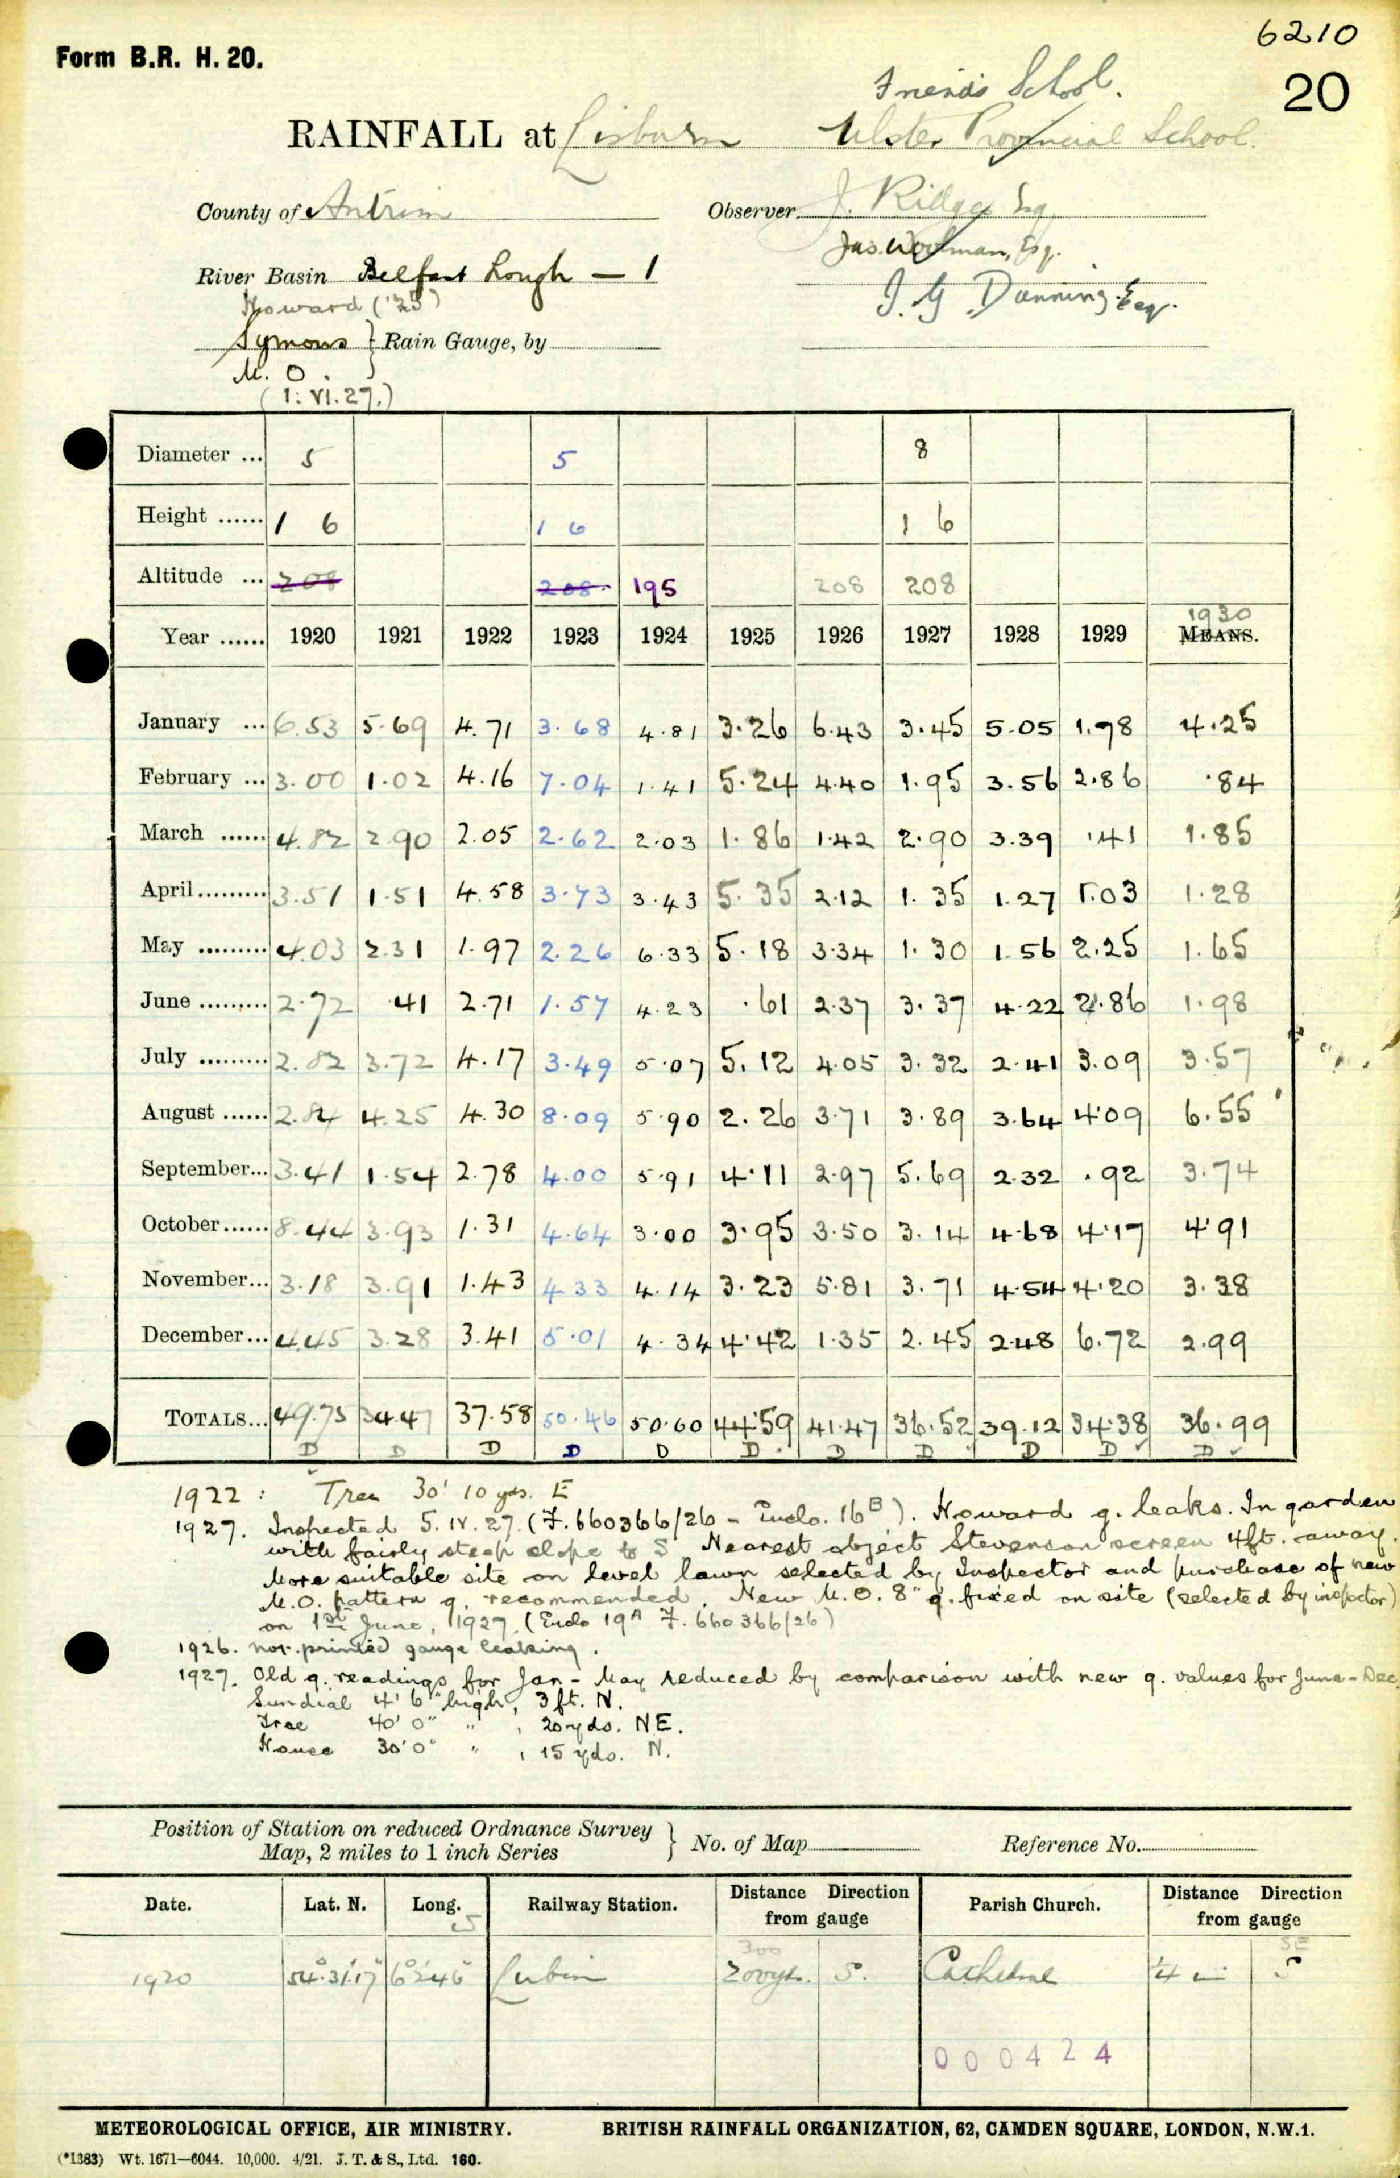 6210
Form B.R. H. 20.
20
Friends School.
RAINFALL at Lisburn Ulster Provincial School.
County of Antrim Observer J. Ridges Esq
Jas. Woolman, Esq.
River Basin Belfast Lough — 1
J. G. Dunning Esq.
Howard ('23)
Symons } Rain Gauge, by
M. O.
(1. VI. 27.)
Diameter ... 5 5 8
Height ...... 1 6 1 6 1 6
Altitude ... 208 208 195 208 208
1930
Year ...... 1920 1921 1922 1923 1924 1925 1926 1927 1928 1929 MEANS.
January ... 6.53 5.69 4.71 3.68 4.81 3.26 6.43 3.45 5.05 1.78 4.25
February ... 3.00 1.02 4.16 7.04 1.41 5.24 4.40 1.95 3.56 2.86 .84
March ...... 4.82 2.90 2.05 2.62 2.03 1.86 1.42 2.90 3.39 .41 1.85
April ......... 3.51 1.51 4.58 3.73 3.43 5.35 2.12 1.35 1.27 1.03 1.28
May ......... 4.03 2.31 1.97 2.26 6.33 5.18 3.34 1.30 1.56 2.25 1.65
June ......... 2.72 .41 2.71 1.57 4.23 .61 2.37 3.37 4.22 2.86 1.98
July ......... 2.82 3.72 4.17 3.49 5.07 5.12 4.05 3.32 2.41 3.09 3.57
August ...... 2.84 4.25 4.30 8.09 5.90 2.26 3.71 3.89 3.64 4.09 6.55
September... 3.41 1.54 2.78 4.00 5.91 4.11 2.97 5.69 2.32 .92 3.74
October...... 8.44 3.93 1.31 4.64 3.00 3.95 3.50 3.14 4.68 4.17 4.91
November... 3.18 3.91 1.43 4.33 4.14 3.23 5.81 3.71 4.54 4.20 3.38
December... 4.45 3.28 3.41 5.01 4.34 4.42 1.35 2.45 2.48 6.72 2.99
TOTALS... 49.75 34.47 37.58 50.46 50.60 44.59 41.47 36.52 39.12 34.38 36.99
D D D D D D D D D D D
1922 : Tree 30' 10 yds. E
1927. Inspected 5. IV. 27. (F.660366/26 - Enclo. 16B). Howard g. leaks. In garden
with fairly steep slope to S Nearest object Stevenson screen 4ft. away.
More suitable site on level lawn selected by Inspector and purchase of new
M.O. pattern g. recommended. New M.O. 8" g. fixed on site (selected by inspector)
on 1st June, 1927. (Enclo 19A F. 660366/26)
1926. not printed gauge leaking.
1927. Old g. readings for Jan - May reduced by comparison with new g. values for June - Dec.
Sundial 4' 6" high, 3 ft. N.
Tree 40' 0" " , 20 yds. NE.
House 30' 0" " , 15 yds. N.
Position of Station on reduced Ordnance Survey
Map, 2 miles to 1 inch Series } No. of Map Reference No.
Date. Lat. N. Long. Railway Station. Distance Direction from gauge Parish Church. Distance Direction from gauge
5 300 SE
1920 54° 31' 17" 6° 2' 46" Lisburn 200 yds. S. Cathedral 1/4 m S
000424
METEOROLOGICAL OFFICE, AIR MINISTRY. BRITISH RAINFALL ORGANIZATION, 62, CAMDEN SQUARE, LONDON, N.W.1.
(*1383) Wt. 1671—6044. 10,000. 4/21. J. T. & S., Ltd. 160.